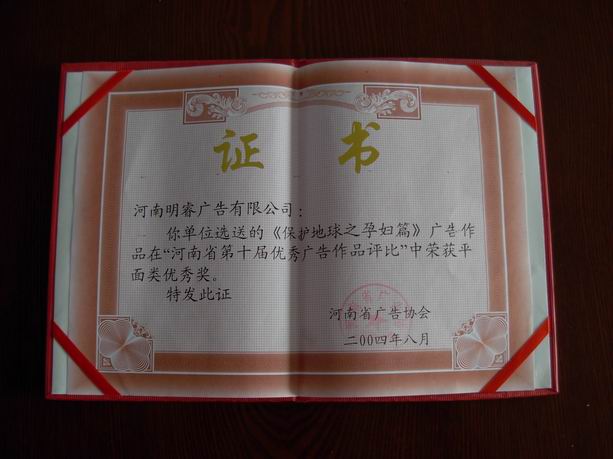 证 书
河南明睿广告有限公司：
你单位选送的《保护地球之孕妇篇》广告作
品在“河南省第十届优秀广告作品评比”中荣获平
面类优秀奖。
特发此证
河南省广告协会
二00四年八月